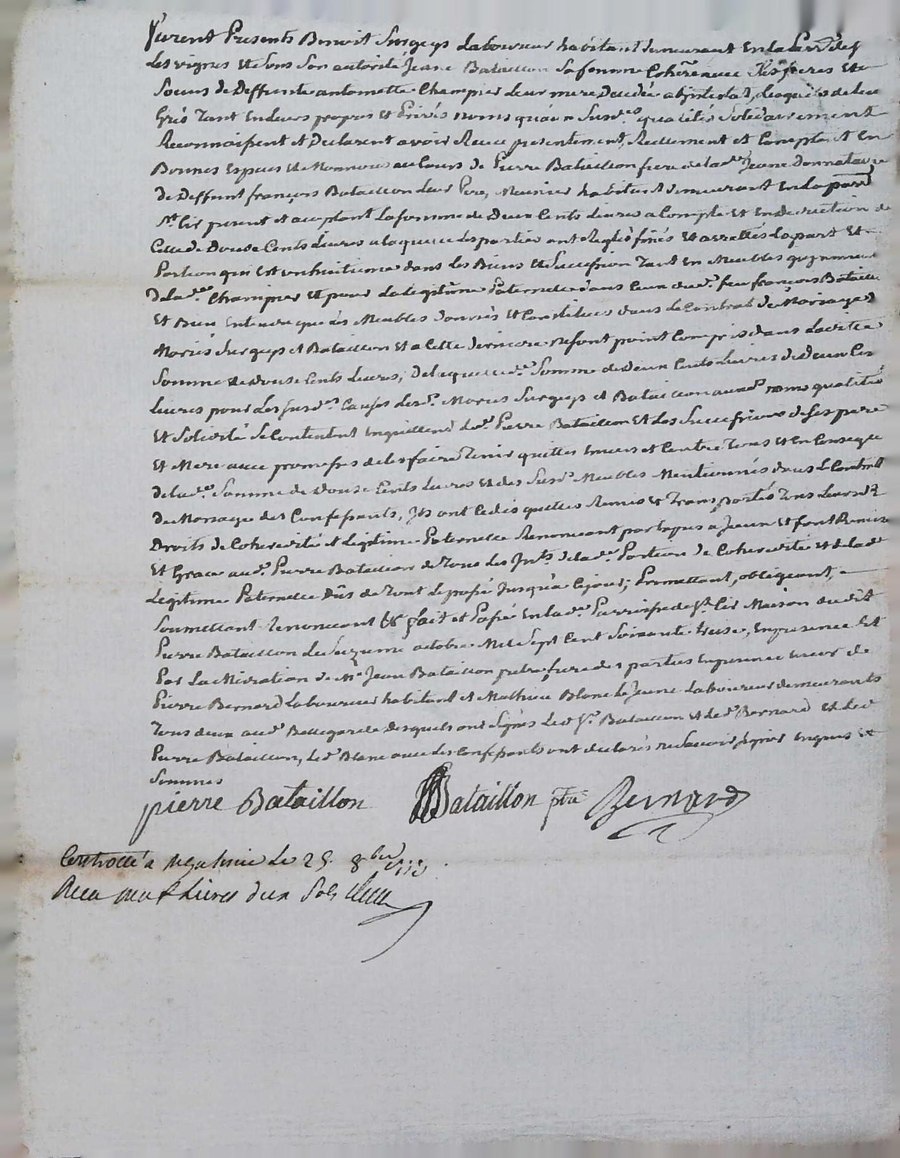 furent Presents Benoit Surgeys Laboureur habitant demeurant En la
Les vignes et de sous Son autorité Jeane Bataillon sa femme Coheritiere frères Et
Soeurs de Deffunte antoinette Champier Leur mere Decedée abintestat, Lesquels de leur
Grés Tant En leurs propres et Privés noms qu'à Susd. qualités Solidairement
Reconnaissent et Declarent avoir Receu presentement, Reellement et Comptant En
Bonnes Espèces de Monnoie au Cours de Pierre Bataillon frere de lad. Jeane donnataire
de Deffunt françois Bataillon Leur Pere, Meunier habitant demeurant En la par.
St. Cir present et acceptant La somme de Deux Cents Livres a Compte et En Deduction de
Celle de Douse Cents Livres a laquelle Les parties ont Reglés finés et arrettés La part Et
Portion qui Est dans Les Biens et Succession Tant En Meubles qu'
De lad. Champier Et pour La Legitime Paternelle dans Ceux dud. feu françois Bataillon
Et Bien Entendu que Les Meubles donnés et Constitués dans Le Contrat de Mariage des
Mariés Surgeys et Bataillon Et a Cette derniere ne font point Compris dans Laditte
Somme de Douse Cents Livres, De laquelle d. Somme de Deux Cents Livres de Deux Cen
Livres pour Les Susd. Causes Les d. Mariés Surgeys et Bataillon auxd. noms qualités
Et Solidité Se Contentent En quittent led. Pierre Bataillon Et Les Successions de Ses pere
Et Mere avec promesses de les faire Tenir quittes Envers et Contre Tous et En Conseque
de lad. Somme de Douse Cents Livres et des Susd. Meubles Mentionnés dans Le Contrat
de Mariage des Confessants, Ils ont Cedés quittés Remis et Transportés Tous Leurs d.
Droits de Coheredité et Legitime Paternelle Renonceant par Exprès a Jceux et font Remise
Et Grace aud. Pierre Bataillon de Tous Les Int. de lad. Portion de Coheredité et de lad.
Legitime Paternelle Dûs de Tout Le passé Jusqu'à Cejour; Promettant, obligeant,
Soumettant Renonceant &a fait et Passé En lad. Parroisse de St. Cir Maison dudit
Pierre Bataillon Le Seizieme octobre Mil Sept Cent Soixante Treise, En presence Et
Par La Mediation de Me. Jean Bataillon pretre frere des parties En presence encor de
Pierre Bernard Laboureur habitant et Mathieu Blanc Le Jeune Laboureur demeurants
Tous deux aud. Bellegarde desquels ont Signés Led. Sr. Bataillon et led. Bernard Et led.
Pierre Bataillon, Led. Blanc avec Les Confessants ont declarés ne Scavoir Signer Enquis et
Sommés
pierre Bataillon Bataillon ptre Bernard
Controllé a Le 25 8bre
Receu neuf Livres deux Sols